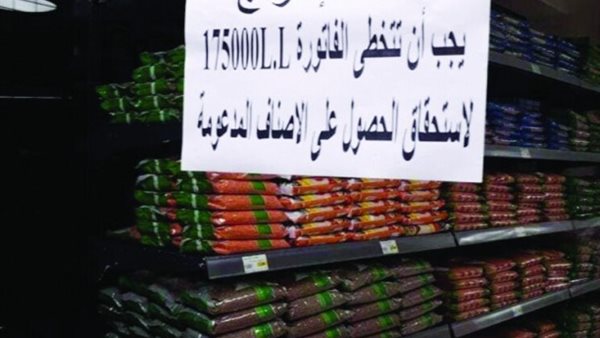 يجب أن تتخطى الفاتورة 175000L.L
لاستحقاق الحصول على الاصناف المدعومة